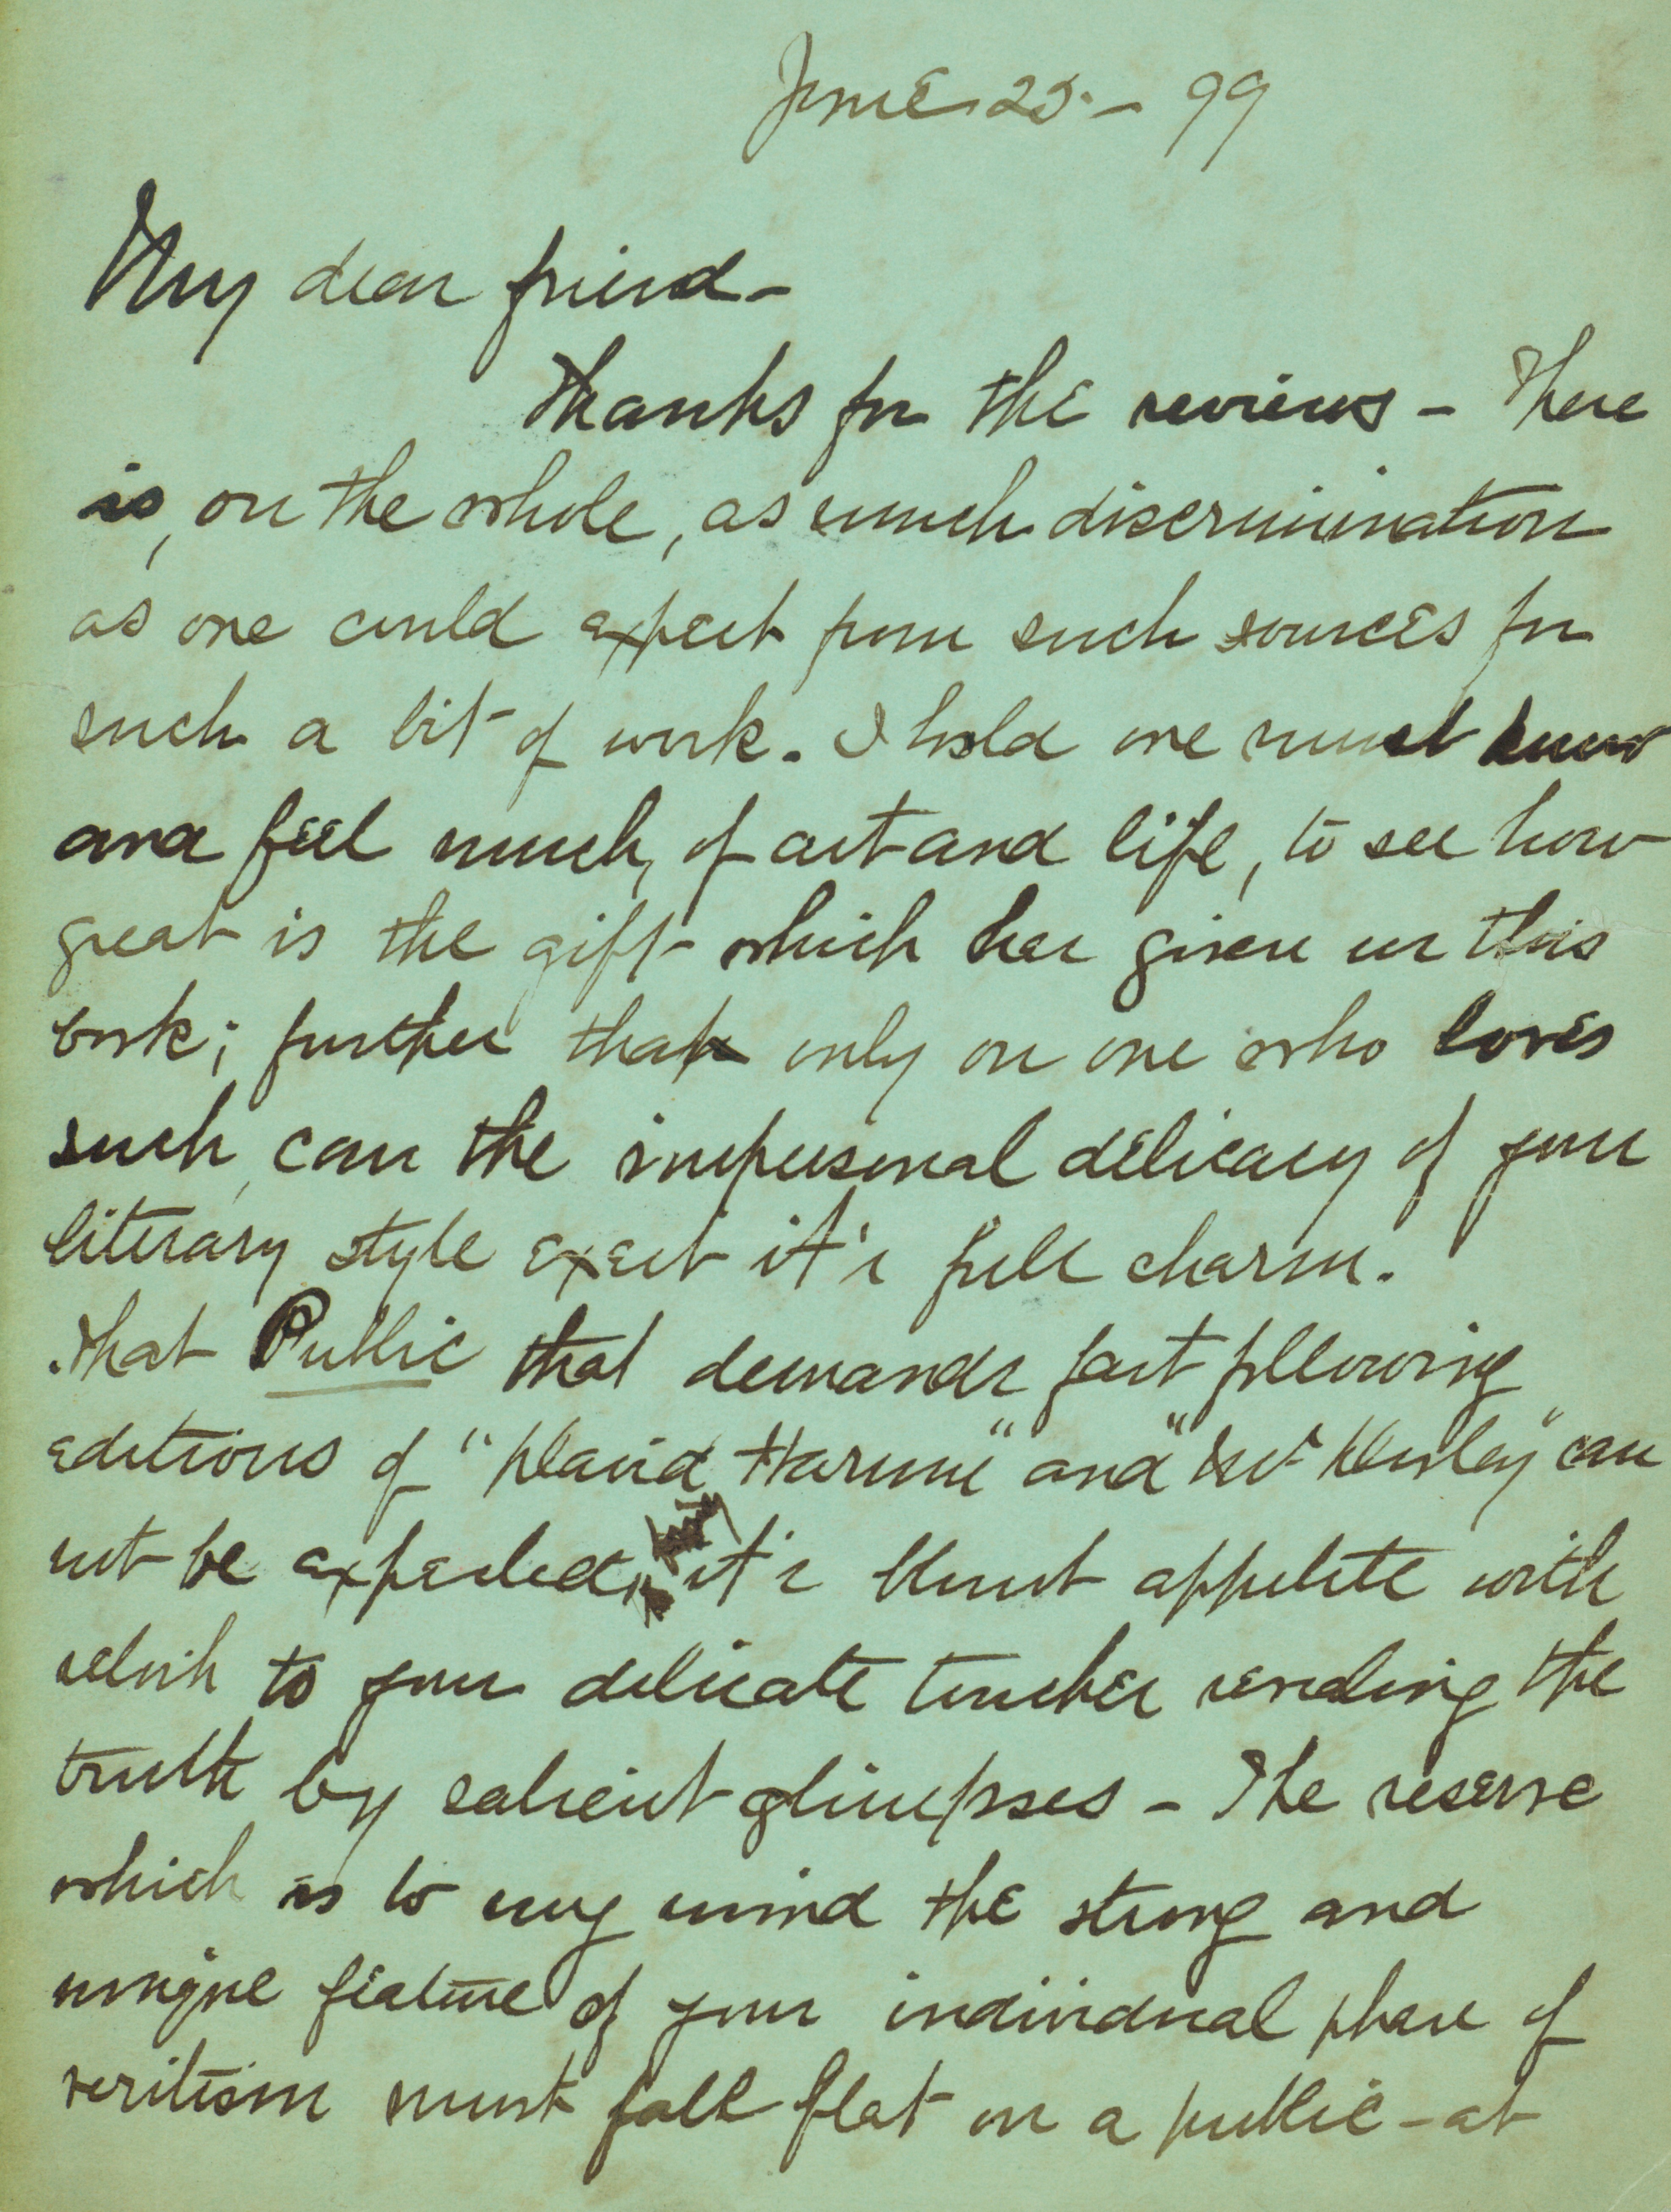 June 25. – 99
My dear friend –
Thanks for the reviews – There
is, on the whole, as much discrimination
as one could expect from such sources for
such a bit of work. I hold one must know
and feel much, of art and life, to see how
great is the gift which has given us this
book; further that only on one who loves
such, can the impersonal delicacy of your
literary style exert it's full charm.
That Public that demands fast following
editions of "David Harum" and "Mr Dooley" can
not be expected, it's blunt appetite with
relish to your delicate touches sending the
truth by salient glimpses – The reserve
which is to my mind the strong and
unique feature of your individual phase of
veritism must fall flat on a public – at